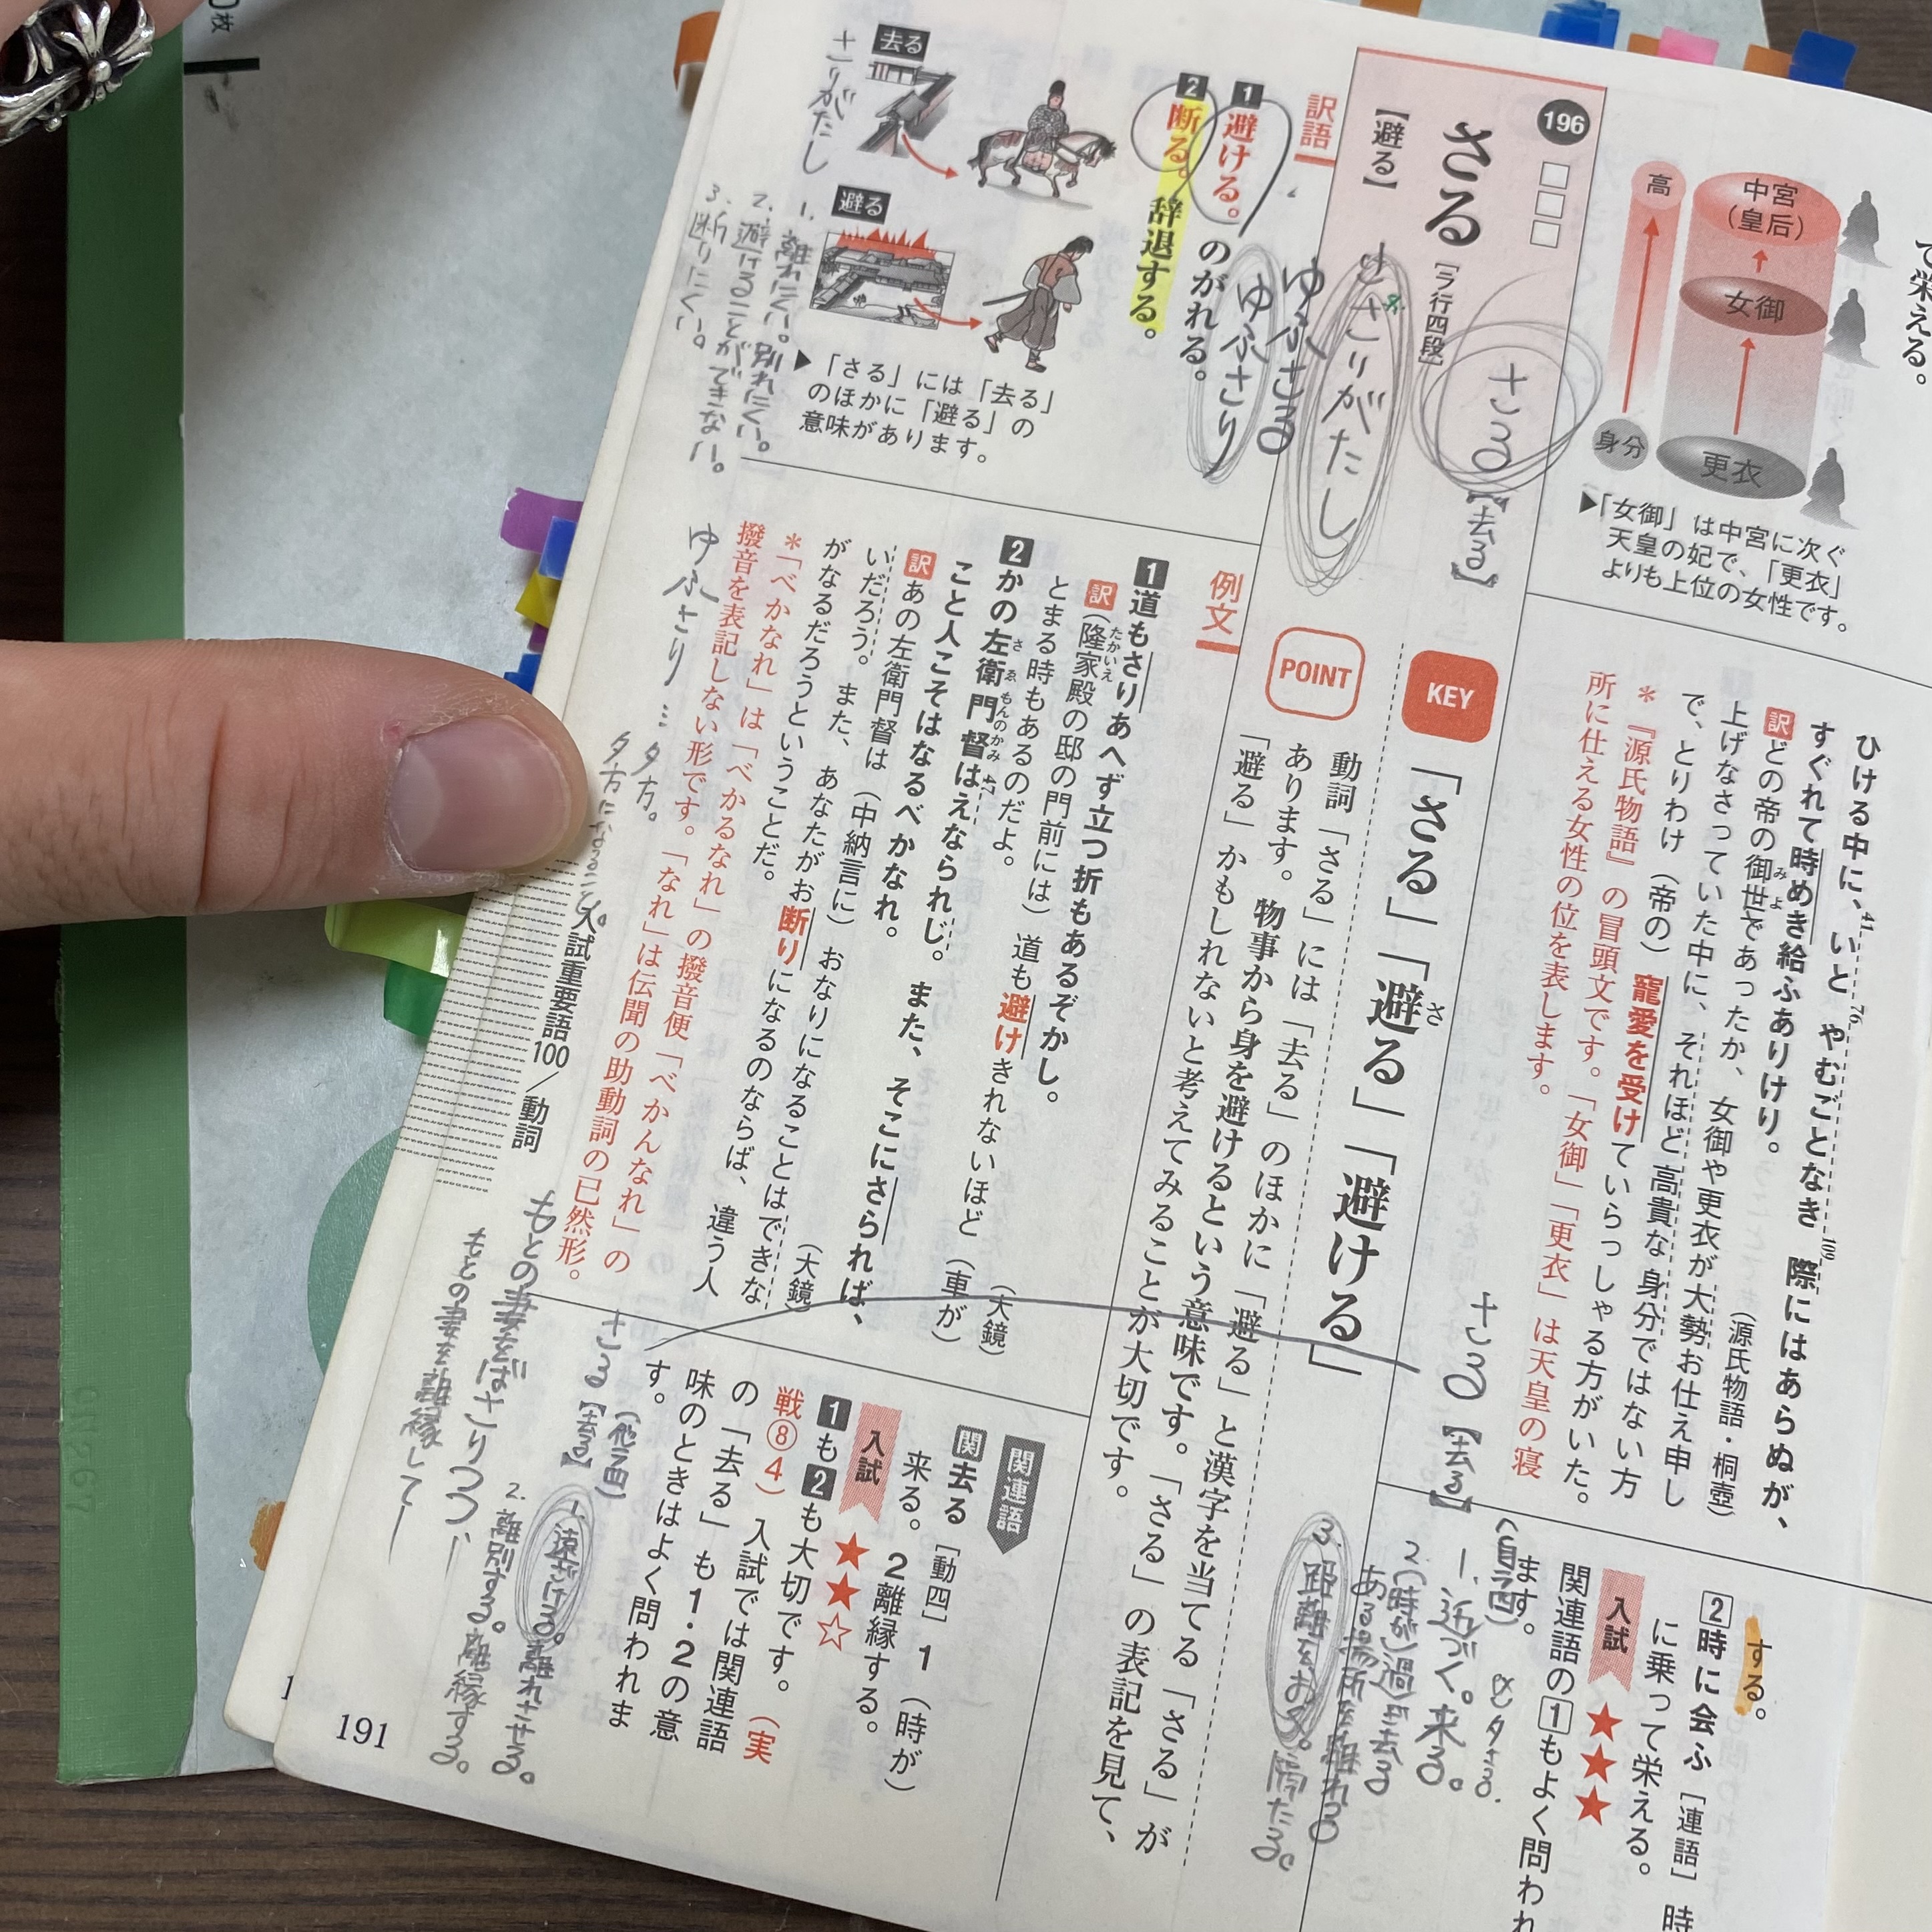 て栄える。
高
身分
中宮
(皇后)
女御
更衣
▶「女御」は中宮に次ぐ
天皇の妃で、「更衣」
よりも上位の女性です。
ひける中に、いと やむごとなき 際にはあらぬが、
すぐれて時めき給ふありけり。
(源氏物語・桐壺)
訳 どの帝の御世であったか、女御や更衣が大勢お仕え申し
上げなさっていた中に、それほど高貴な身分ではない方
で、とりわけ(帝の)寵愛を受けていらっしゃる方がいた。
*『源氏物語』の冒頭文です。「女御」「更衣」は天皇の寝
所に仕える女性の位を表します。
する。
2 時に会ふ[連語]時
に乗って栄える。
入試 ★★★
関連語の1もよく問われ
ます。
196
さる
[ラ行四段]
【避る】
さる
【去る】
さりがたし
ゆふさる
ゆふさり
訳語
1 避ける。のがれる。
2 断る。辞退する。
去る
避る
▶「さる」には「去る」
のほかに「避る」の
意味があります。
さりがたし
1. 離れにくい。別れにくい。
2. 避けることができない。
3. 断りにくい。
KEY
「さる」「避る」「避ける」
POINT
動詞「さる」には「去る」のほかに「避る」と漢字を当てる「さる」が
あります。物事から身を避けるという意味です。「さる」の表記を見て、
「避る」かもしれないと考えてみることが大切です。
さる【去る】
(自ラ四)
1. 近づく。来る。
夕さる.
2.(時が)過ぎ去る
ある場所を離れる
3. 距離をおく。隔たる。
例文
1 道もさりあへず立つ折もあるぞかし。
(大鏡)
訳(隆家殿の邸の門前には)道も避けきれないほど(車が)
とまる時もあるのだよ。
2 かの左衛門督はえなられじ。また、そこにさられば、
こと人こそはなるべかなれ。
(大鏡)
訳 あの左衛門督は(中納言に)おなりになることはできな
いだろう。また、あなたがお断りになるのならば、違う人
がなるだろうということだ。
*「べかなれ」は「べかるなれ」の撥音便「べかんなれ」の
撥音を表記しない形です。「なれ」は伝聞の助動詞の已然形。
ゆふさり…夕方。
夕方になること。
関連語
関 去る[動四]1(時が)
来る。2離縁する。
入試 ★★☆
1も2も大切です。(実
戦⑧4)入試では関連語
の「去る」も1・2の意
味のときはよく問われま
す。
さる【去る】
(他ラ四)
1. 遠ざける。離れさせる。
2. 離別する。離縁する。
もとの妻をばさりつつ、
もとの妻を離縁して
入試重要語100/動詞
191